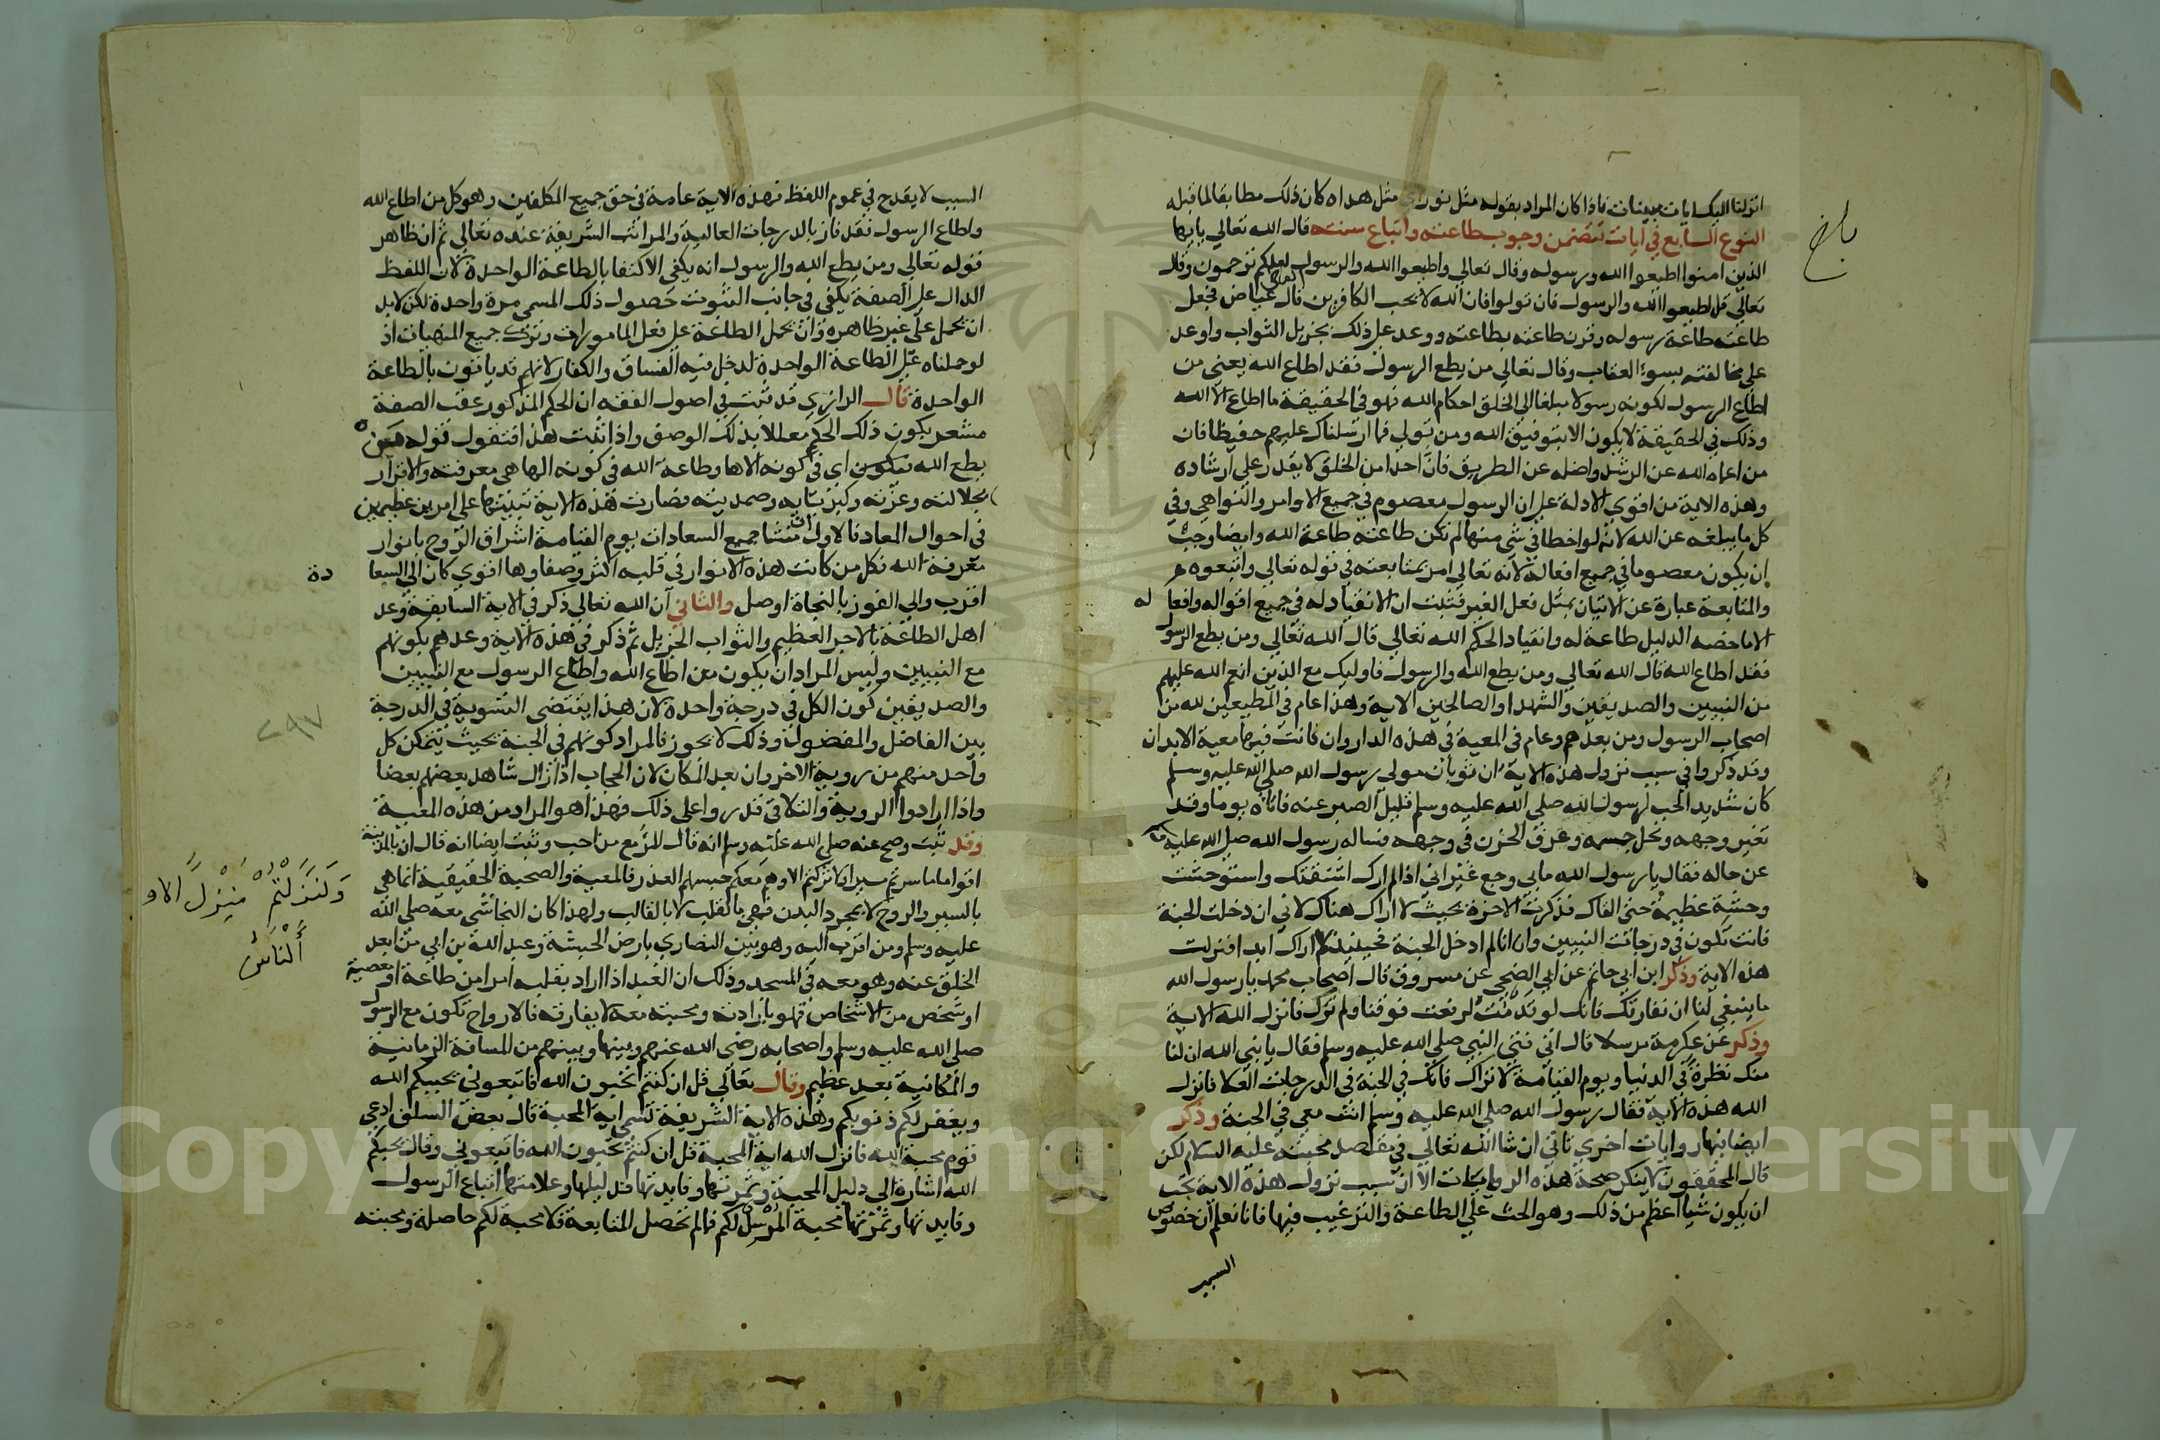 انزلنا اليك ايات بينات فاذا كان المراد بقوله مثل نوره اي مثل هداه كان ذلك مطابقا لما قبله
النوع السابع في ايات تتضمن وجوب طاعته واتباع سنته قال الله تعالي يا ايها
الذين امنوا اطيعوا الله ورسوله وقال تعالي واطيعوا الله والرسول لعلكم ترحمون وقال
تعالي قل اطيعوا الله والرسول فان تولوا فان الله لا يحب الكافرين قال القاضي عياض فجعل
طاعته طاعة رسوله وقرن طاعته بطاعته ووعد علي ذلك بجزيل الثواب واوعد
علي مخالفته بسوء العقاب وقال تعالي من يطع الرسول فقد اطاع الله يعني من
اطاع الرسول لكونه رسولا مبلغا الي الخلق احكام الله فهو في الحقيقة ما اطاع الا الله
وذلك في الحقيقة لا يكون الا بتوفيق الله ومن تولي فما ارسلناك عليهم حفيظا فان
من اعماه الله عن الرشد واضله عن الطريق فان احدا من الخلق لا يقدر علي ارشاده
وهذه الاية من اقوي الادلة علي ان الرسول معصوم في جميع الاوامر والنواهي وفي
كل ما يبلغه عن الله لانه لو اخطا في شي منها لم تكن طاعته طاعة الله وايضا وجب
ان يكون معصوما في جميع افعاله لانه تعالي امر بمتابعته في قوله تعالي واتبعوه
والمتابعة عبارة عن الاتيان بمثل فعل الغير فثبت ان الانقياد له في جميع اقواله وافعاله
الا ما خصه الدليل طاعة له وانقياد لحكم الله تعالي قال الله تعالي ومن يطع الرسول
فقد اطاع الله قال الله تعالي ومن يطع الله والرسول فاوليك مع الذين انعم الله عليهم
من النبيين والصديقين والشهدا والصالحين الاية وهذا عام في المطيعين لله من
اصحاب الرسول ومن بعدهم وعام في المعية في هذه الدار وان فاتت فيها معية الابدان
وقد ذكروا في سبب نزول هذه الاية ان ثوبان مولي رسول الله صلي الله عليه وسلم
كان شديد الحب لرسول الله صلي الله عليه وسلم قليل الصبر عنه فاتاه يوما وقد
تغير وجهه ونحل جسمه وعرف الحزن في وجهه فساله رسول الله صلي الله عليه
عن حاله فقال يا رسول الله ما بي وجع غير اني اذا لم ارك اشتقتك واستوحشت
وحشة عظيمة حتي القاك فذكرت الاخرة بحيث لا اراك هناك لاني ان دخلت الجنة
فانت تكون في درجات النبيين وان انا لم ادخل الجنة فحينيذ لا اراك ابدا فنزلت
هذه الاية وذكر ابن ابي حاتم عن ابي الضحي عن مسروق قال اصحاب محمد يا رسول الله
ما ينبغي لنا ان نفارقك فانك لو قدمت لرفعت فوقنا ولم نرك فانزل الله الاية
وذكر عن عكرمة مرسلا قال اتي فتي النبي صلي الله عليه وسلم فقال يا نبي الله ان لنا
منك نظرة في الدنيا ويوم القيامة لا نراك فانك في الجنة في الدرجات العلا فانزل
الله هذه الاية فقال رسول الله صلي الله عليه وسلم انت معي في الجنة وذكر
ايضا فيها روايات اخري تاتي ان شا الله تعالي في مقصد محبته عليه السلام لكن
قال المحققون لا ينكر صحة هذه الروايات الا ان سبب نزول هذه الاية يجب
ان يكون شيا اعظم من ذلك وهو الحث علي الطاعة والترغيب فيها فانا نعلم ان خصوص
السبب
السبب لا يقدح في عموم اللفظ فهذه الاية عامة في حق جميع المكلفين وهو كل من اطاع الله
واطاع الرسول فقد فاز بالدرجات العالية والمراتب الشريفة عنده تعالي ثم ان ظاهر
قوله تعالي ومن يطع الله والرسول انه يكفي الاكتفا بالطاعة الواحدة لان اللفظ
الدال علي الصفة يكفي في جانب الثبوت حصول ذلك المسمي مرة واحدة لكن لا بد
ان يحمل علي غير ظاهره وان تحمل الطاعة علي فعل المامورات وترك جميع المنهيات اذ
لو حملناه علي الطاعة الواحدة لدخل فيه الفساق والكفار لانهم قد ياتون بالطاعة
الواحدة قال الرازي قد ثبت في اصول الفقه ان الحكم المذكور عقب الصفة
مشعر بكون ذلك الحكم معللا بذلك الوصف واذا ثبت هذا فنقول قوله من
يطع الله اي في كونه الاها وطاعة الله في كونه الها هي معرفته والاقرار
بجلالته وعزته وكبريايه وصمديته فصارت هذه الاية تنبيها علي امرين عظيمين
في احوال المعاد فالاول ان منشا جميع السعادات يوم القيامة اشراق الروح بانوار
معرفة الله فكل من كانت هذه الانوار في قلبه اكثر وصفاوها اقوي كان الي السعا
دة
اقرب والي الفوز بالنجاة اوصل والثاني ان الله تعالي ذكر في الاية السابقة وعد
اهل الطاعة بالاجر العظيم والثواب الجزيل ثم ذكر في هذه الاية وعدهم بكونهم
مع النبيين وليس المراد ان يكون من اطاع الله واطاع الرسول مع النبيين
والصديقين كون الكل في درجة واحدة لان هذا يقتضي التسوية في الدرجة
بين الفاضل والمفضول وذلك لا يجوز فالمراد كونهم في الجنة بحيث يتمكن كل
واحد منهم من روية الاخر وان بعد المكان لان الحجاب اذا زال شاهد بعضهم بعضا
واذا ارادوا الروية والتلاقي قدروا علي ذلك فهذا هو المراد من هذه المعية
وقد ثبت وصح عنه صلي الله عليه وسلم انه قال المرء مع من احب وثبت ايضا انه قال ان بالمدينة
اقواما ما سرتم مسيرا ولا نزلتم الا وهم معكم حبسهم العذر فالمعية والصحبة الحقيقية انما هي
بالسير والروح لا بمجرد البدن فهي بالقلب لا بالقالب ولهذا كان النجاشي معه صلي الله
عليه وسلم ومن اقرب اليه وهو بين النصاري بارض الحبشة وعبد الله بن ابي من ابعد
الخلق عنه وهو معه في المسجد وذلك ان العبد اذا اراد بقلبه امرا من طاعة او معصية
او شخص من الاشخاص فهو بارادته ومحبته معه لا يفارقه فالارواح تكون مع الرسول
صلي الله عليه وسلم واصحابه رضي الله عنهم وبينها وبينهم من المسافة الزمانية
والمكانية بعد عظيم وقال تعالي قل ان كنتم تحبون الله فاتبعوني يحببكم الله
ويغفر لكم ذنوبكم وهذه الاية الشريفة تسمي اية المحبة قال بعض السلف ادعي
قوم محبة الله فانزل الله اية المحبة قل ان كنتم تحبون الله فاتبعوني وقال يحببكم
الله اشارة الي دليل المحبة وثمرتها وفايدتها فدليلها وعلامتها اتباع الرسول
وفايدتها وثمرتها محبة المرسل لكم فما لم تحصل المتابعة فلا محبة لكم حاصلة ومحبته
٢٩٧
الناس
Copy
ng S
ersity